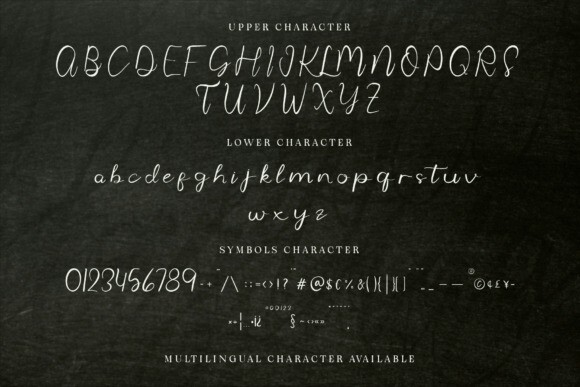 UPPER CHARACTER
ABCDEFGHIJKLMNOPQRS
TUVWXYZ
LOWER CHARACTER
abcdefghijklmnopqrstuv
wxyz
SYMBOLS CHARACTER
0123456789-+ /\ :;=<>!? #@$€%&(){|}[] __ — — ®©¢£¥-
§ ~
MULTILINGUAL CHARACTER AVAILABLE